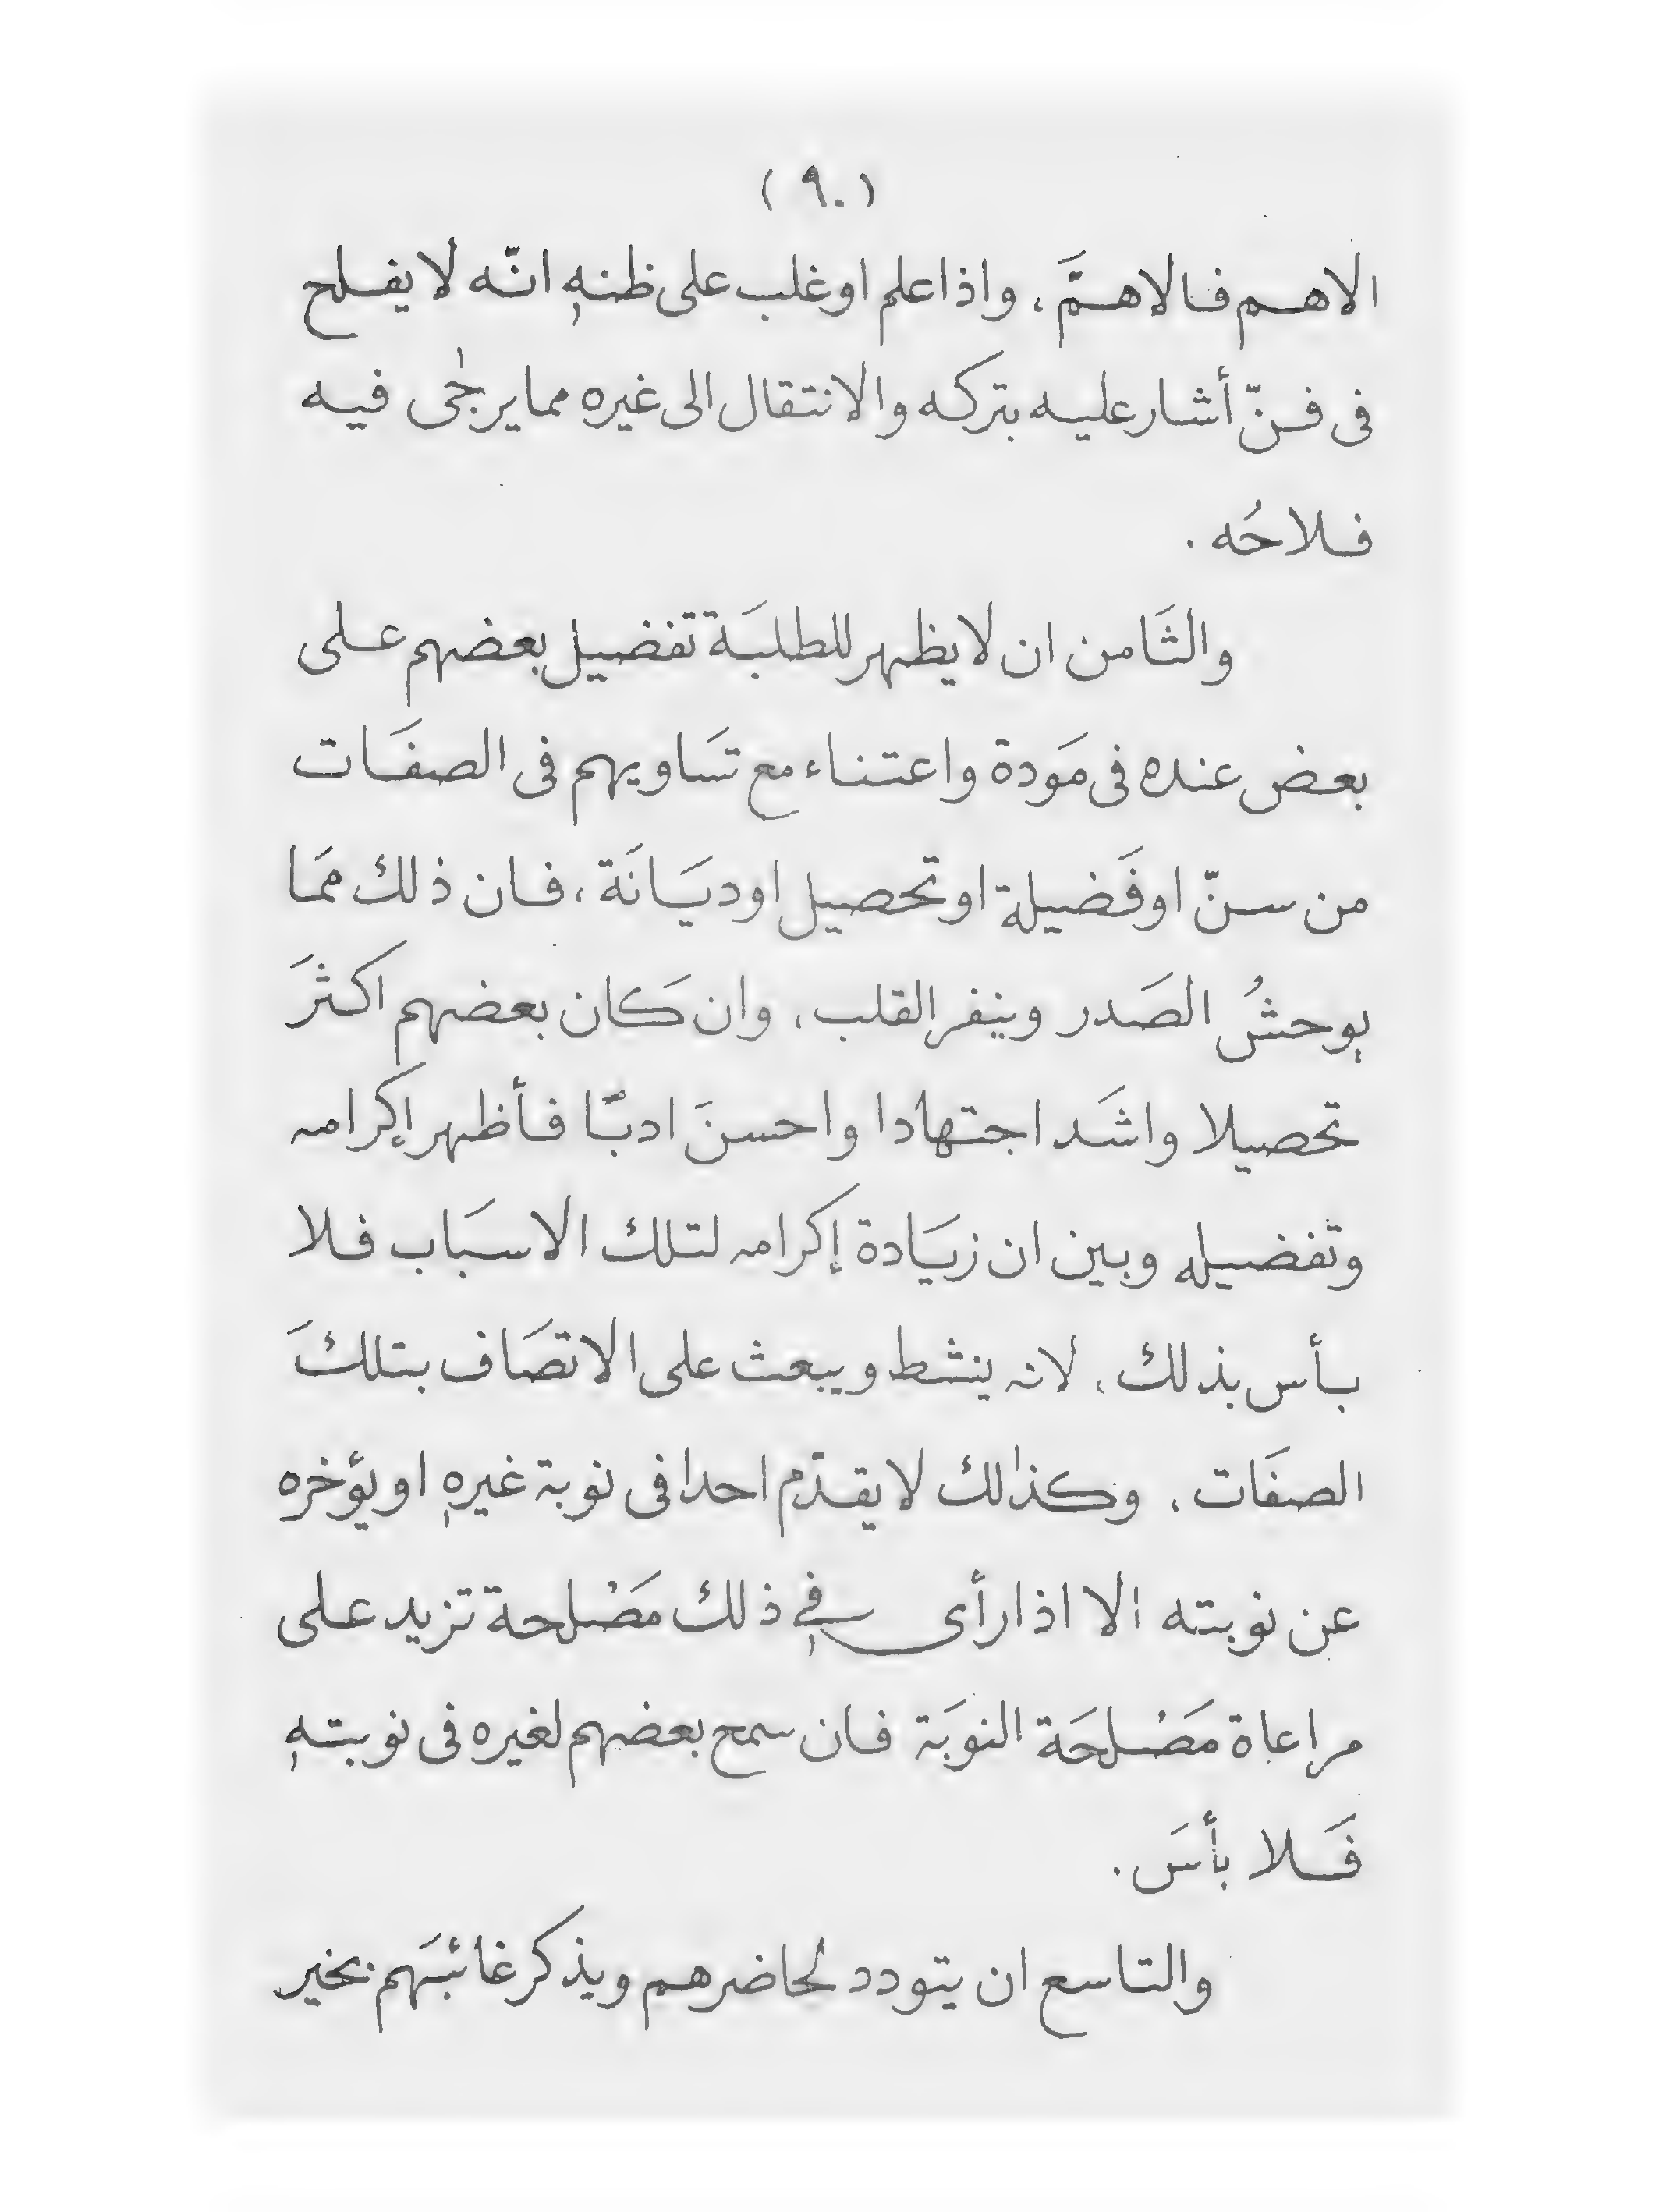 ( ٩٠ )
الاهم فالاهمَّ، واذا علم او غلب على ظنهٖ انّه لا يفلح
فى فنّ أشار عليه بتركه والانتقال الى غيره مما يرجٰى فيه
فلاحُه .
والثَامن ان لا يظهر للطلبَة تفضيل بعضهم على
بعض عنده فى مَودة واعتناء مع تسَاويهم فى الصفَات
من سنّ او فَضيلة او تحصيل او ديَانَة، فان ذلك ممَا
يوحشُ الصَدر وينفر القلب، وان كَان بعضهم اكثرَ
تحصيلا واشَد اجتهادا واحسنَ ادبًا فأظهر إكرامه
وتفضيله وبين ان زيَادة إكرامه لتلك الاسبَاب فلا
بأس بذلك، لانه ينشط ويبعث على الاتصَاف بتلكَ
الصفَات، وكذٰلك لا يقدّم احدا فى نوبة غيرهٖ او يؤخره
عن نوبته الا اذا رأى فے ذلك مَصْلحة تزيد على
مراعاة مَصْلحَة النوبَة فان سمح بعضهم لغيره فى نوبتهٖ
فَلا بأسَ .
والتاسع ان يتودد لحاضرهم ويذكر غائبَهم بخير